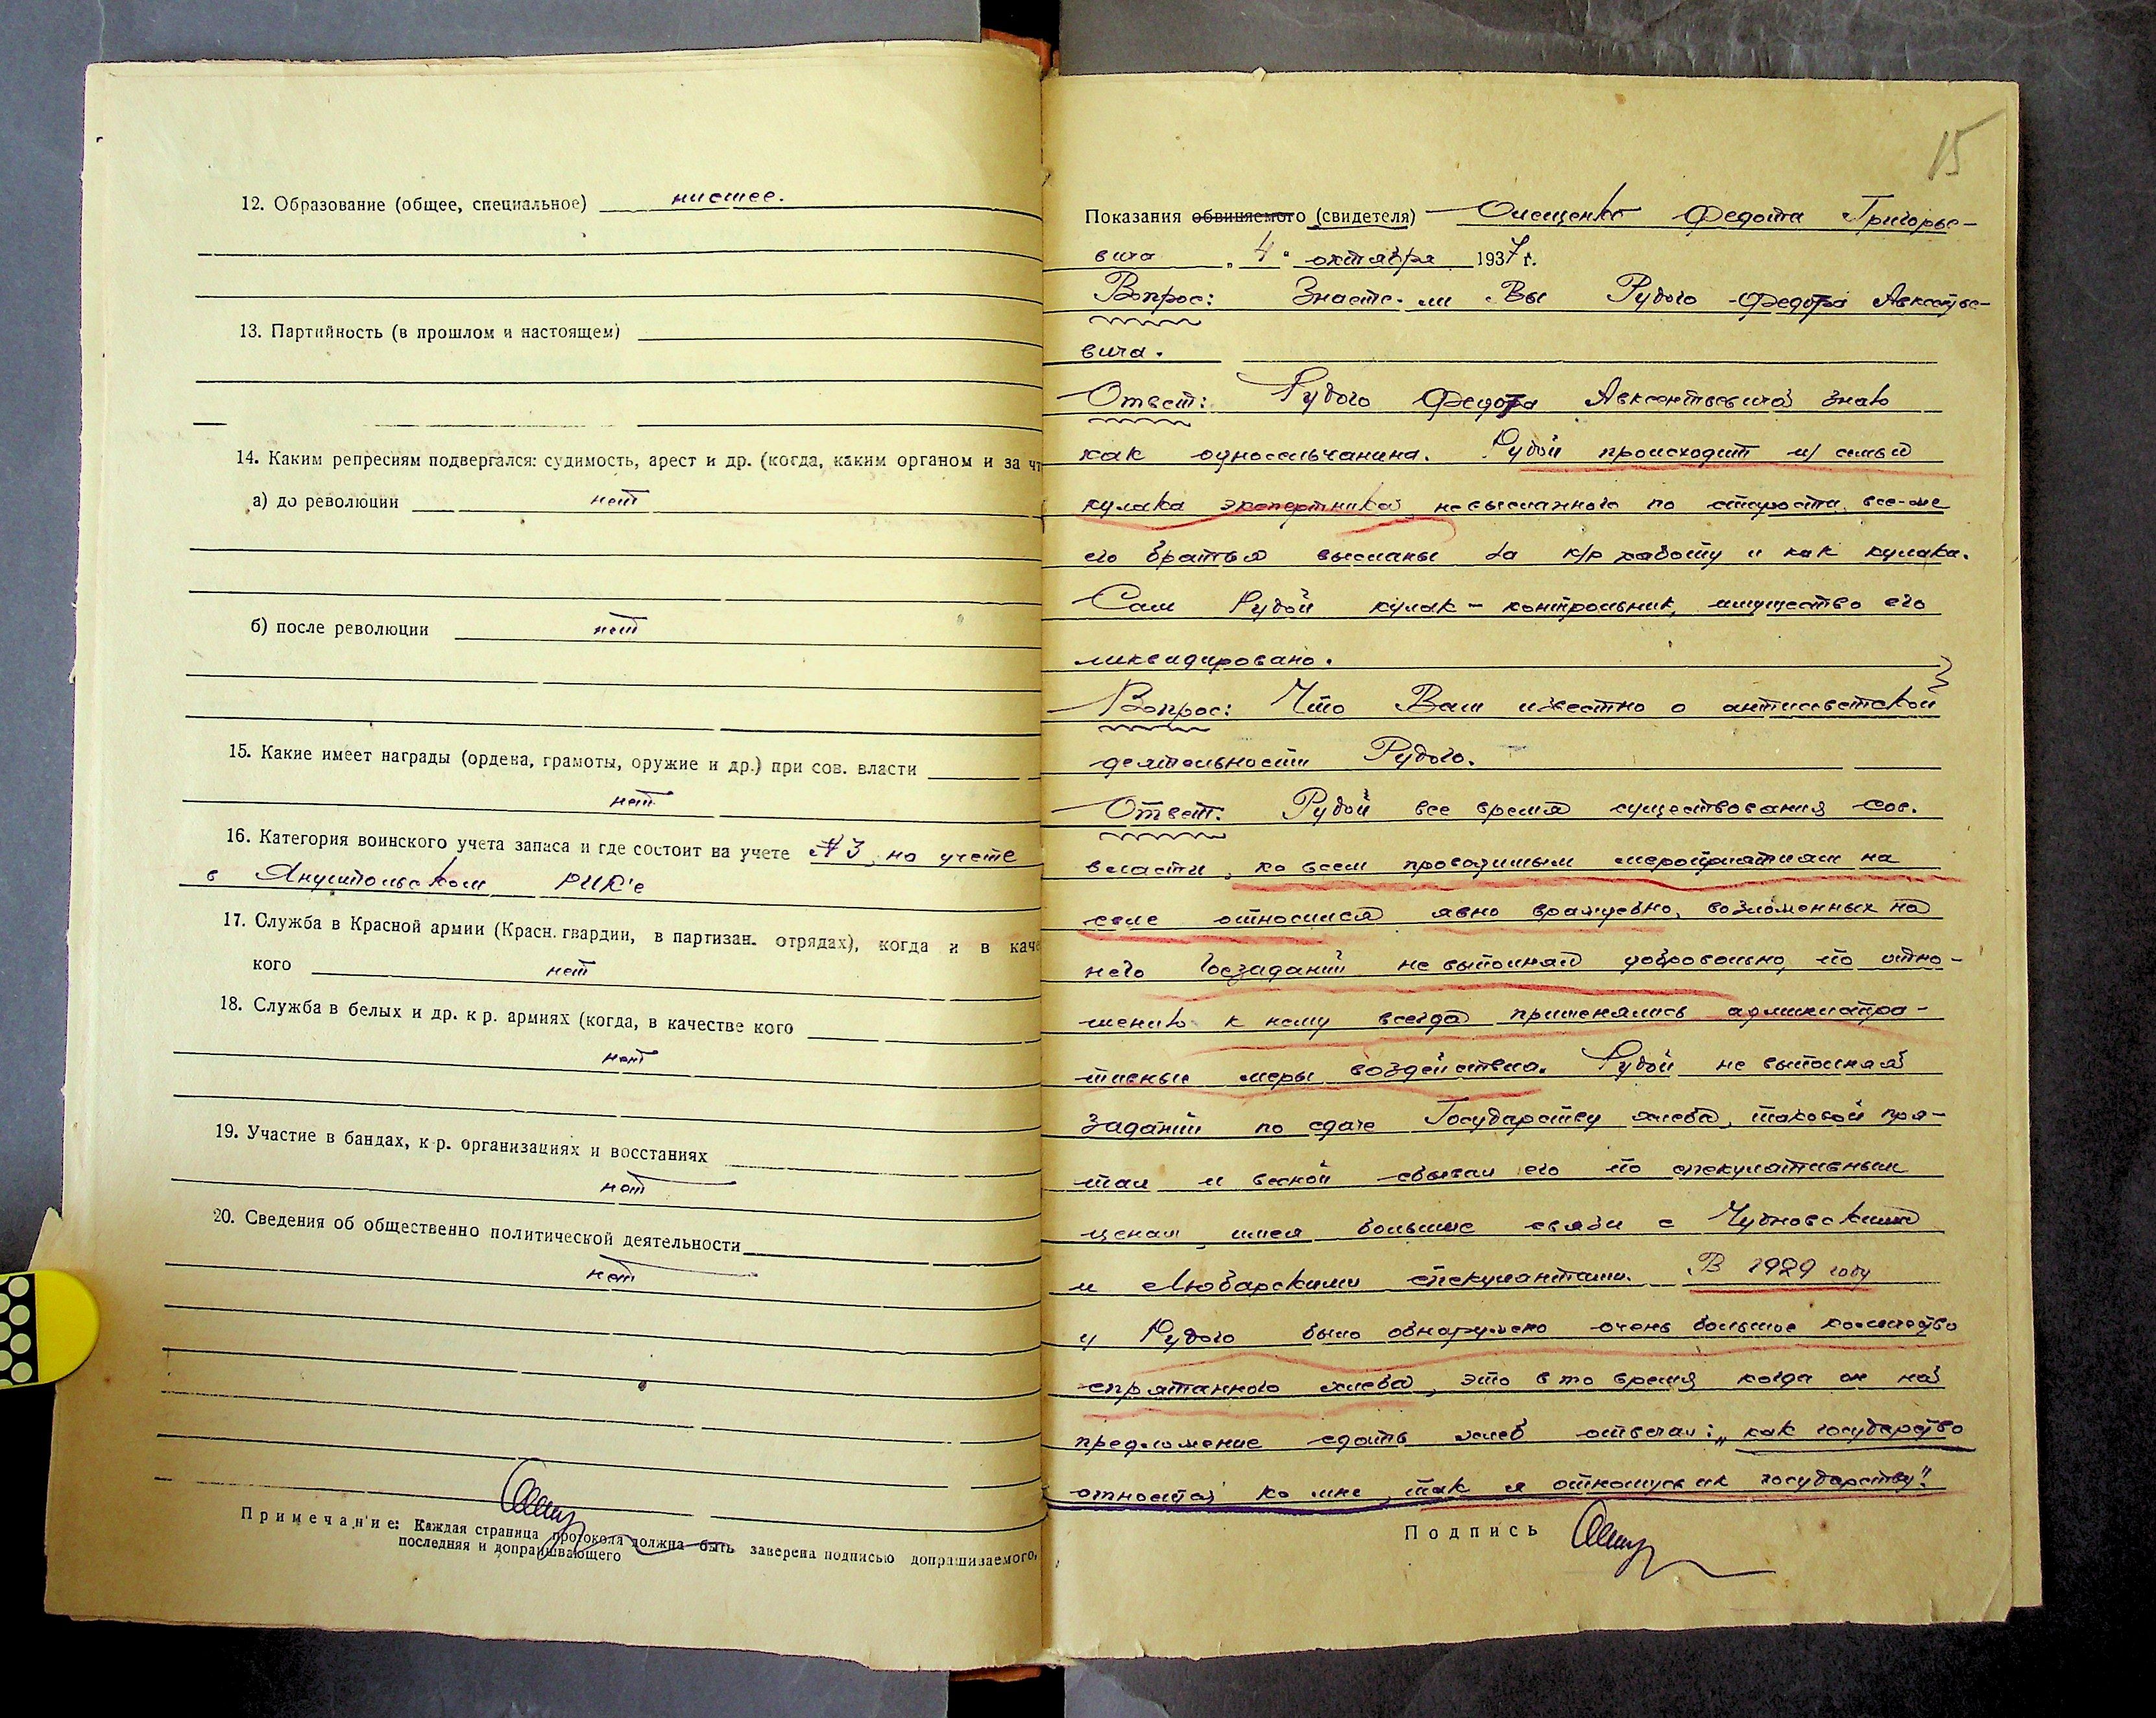 12. Образование (общее, специальное) нисшее.
13. Партийность (в прошлом и настоящем)
14. Каким репресиям подвергался: судимость, арест и др. (когда, каким органом и за чт
а) до революции нет
б) после революции нет
15. Какие имеет награды (ордена, грамоты, оружие и др.) при сов. власти
нет
16. Категория воинского учета запаса и где состоит на учете № 3, на учете
в Янушпольском РИК'е
17. Служба в Красной армии (Красн. гвардии, в партизан. отрядах), когда и в каче
кого нет
18. Служба в белых и др. к р. армиях (когда, в качестве кого
нет
19. Участие в бандах, к р. организациях и восстаниях
нет
20. Сведения об общественно политической деятельности
нет
Примечание: Каждая страница протокола должна быть заверена подписью допрашиваемого,
последняя и допрашивающего
15
Показания обвиняемого (свидетеля) Онещенко Федота Григорье-
вича „4" октября 1937 г.
Вопрос: Знаете-ли Вы Рудого Федора Авксентье-
вича.
Ответ: Рудого Федора Авксентьевича знаю
как односельчанина. Рудой происходит из семьи
кулака экспертника невысланного по старости, все-же
его братья высланы за к/р работу и как кулака.
Сам Рудой кулак-контрольник, имущество его
ликвидировано.
Вопрос: Что Вам известно о антисоветской
деятельности Рудого.
Ответ: Рудой все время существования сов.
власти, ко всем проводимым мероприятиям на
селе относился явно враждебно, возложенных на
него Госзаданий не выполнял добровольно, по отно-
шению к нему всегда применялись администра-
тивные меры воздействия. Рудой не выполняя
заданий по сдаче Государству хлеба, таковой пря-
тал и весной сбывал его по спекулятивным
ценам, имея большие связи с Чудновскими
и Любарскими спекулянтами. В 1929 году
у Рудого было обнаружено очень большое количество
спрятанного хлеба, это в то время когда он на
предложение сдать хлеб отвечал: „как государство
относится ко мне, так и я отношусь к государству".
Подпись